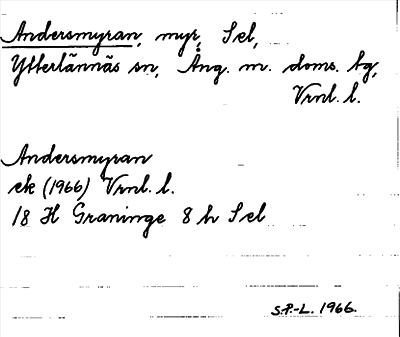 Andersmyran, myr, Sel,
Ytterlännäs sn, Ång. m. doms. tg,
Vrnl. l.
Andersmyran
ek (1966) Vrnl. l.
18 H Graninge 8 h Sel
S.P.-L. 1966.